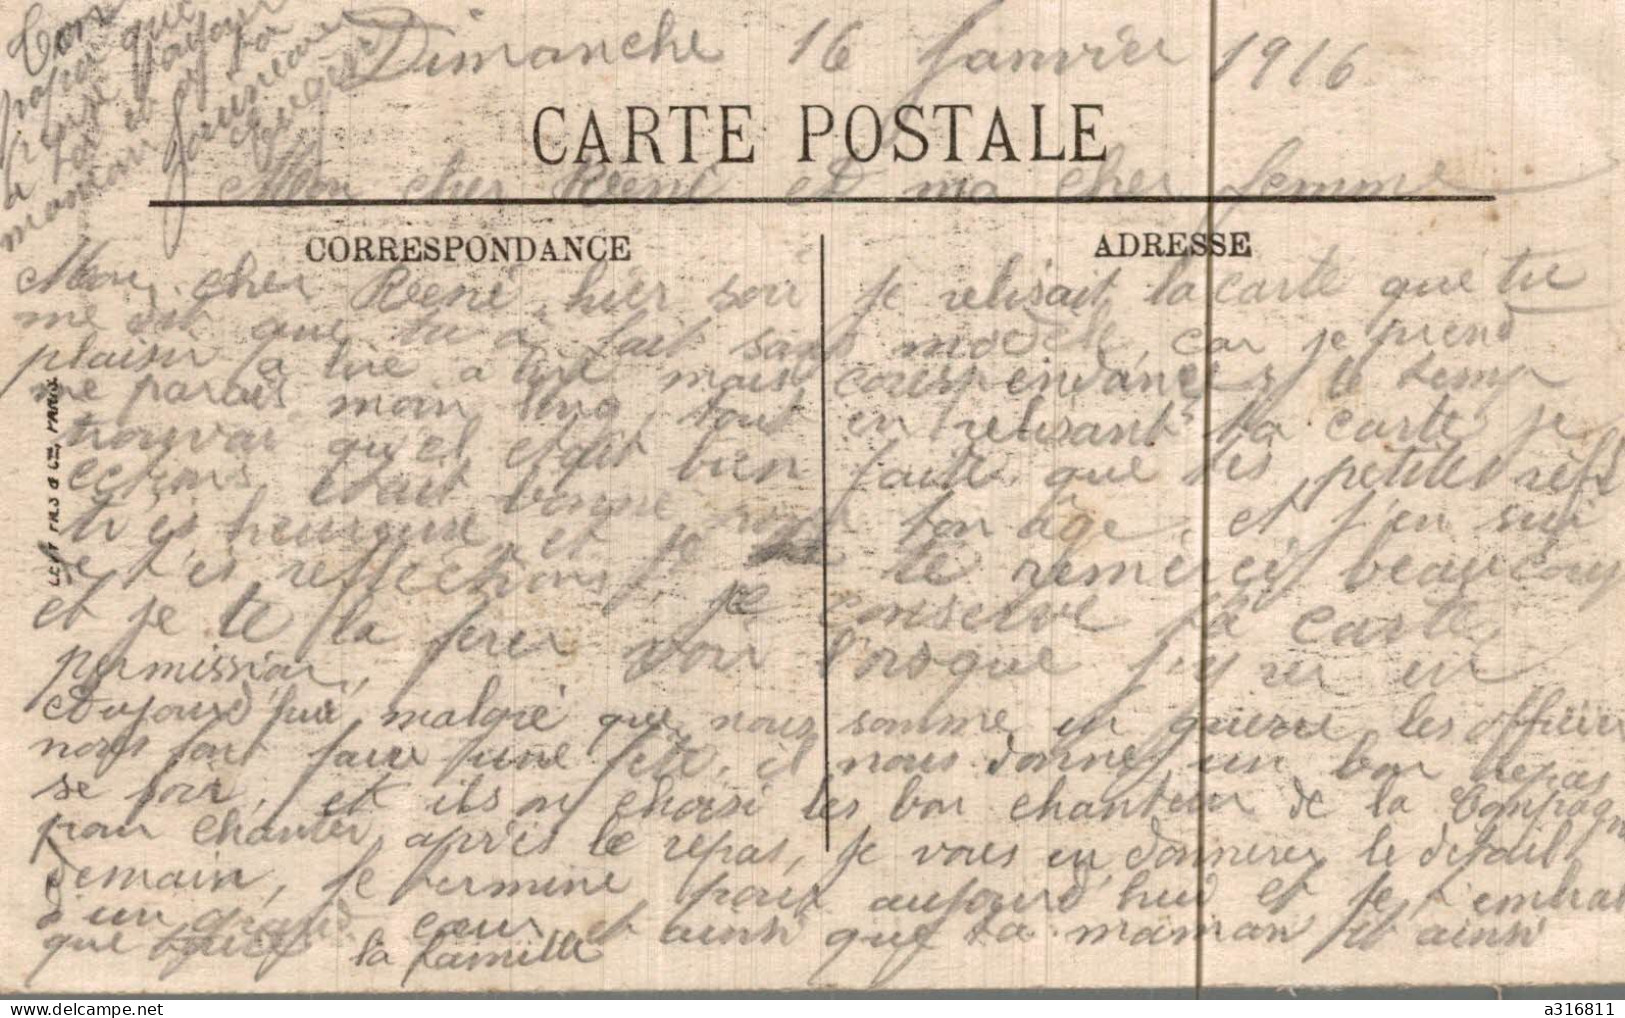 Dimanche 16 Janvier 1916
CARTE POSTALE
Mon cher René et ma cher femme
CORRESPONDANCE
ADRESSE
Mon cher René, hier soir je relisait la carte que tu
me et que tu a fait sans modèle, car je prend
plaisir a lire a lire mais correspondances, le temp
me parais moin long, tout en relisant ta carte je
trouvai qu'el etait bien faite, que tes petites réfl
ections était bonne pour ton âge, et j'en sui
heureux et je te remerci beaucoup
de t'es reflections, je conserve ta carte,
et je te la ferer voir l'orsque j'y rer en
permission,
aujourd'hui, malgré que nous somme en guerre les officier
nous font faire une fete, il nous donne un bon repas
se soir, et ils on choisi les bon chanteur de la Compagn
pour chanter après le repas, je vous en donnerer le détail
demain, je termine pour aujourd'hui et je t'embra
d'un grand cœur et ainsi que ta maman et ainsi
que toute la famille
Ton
papa que
pense toujour
a toi et a ta
maman
LEVY FILS & Cie, PARIS
a316811